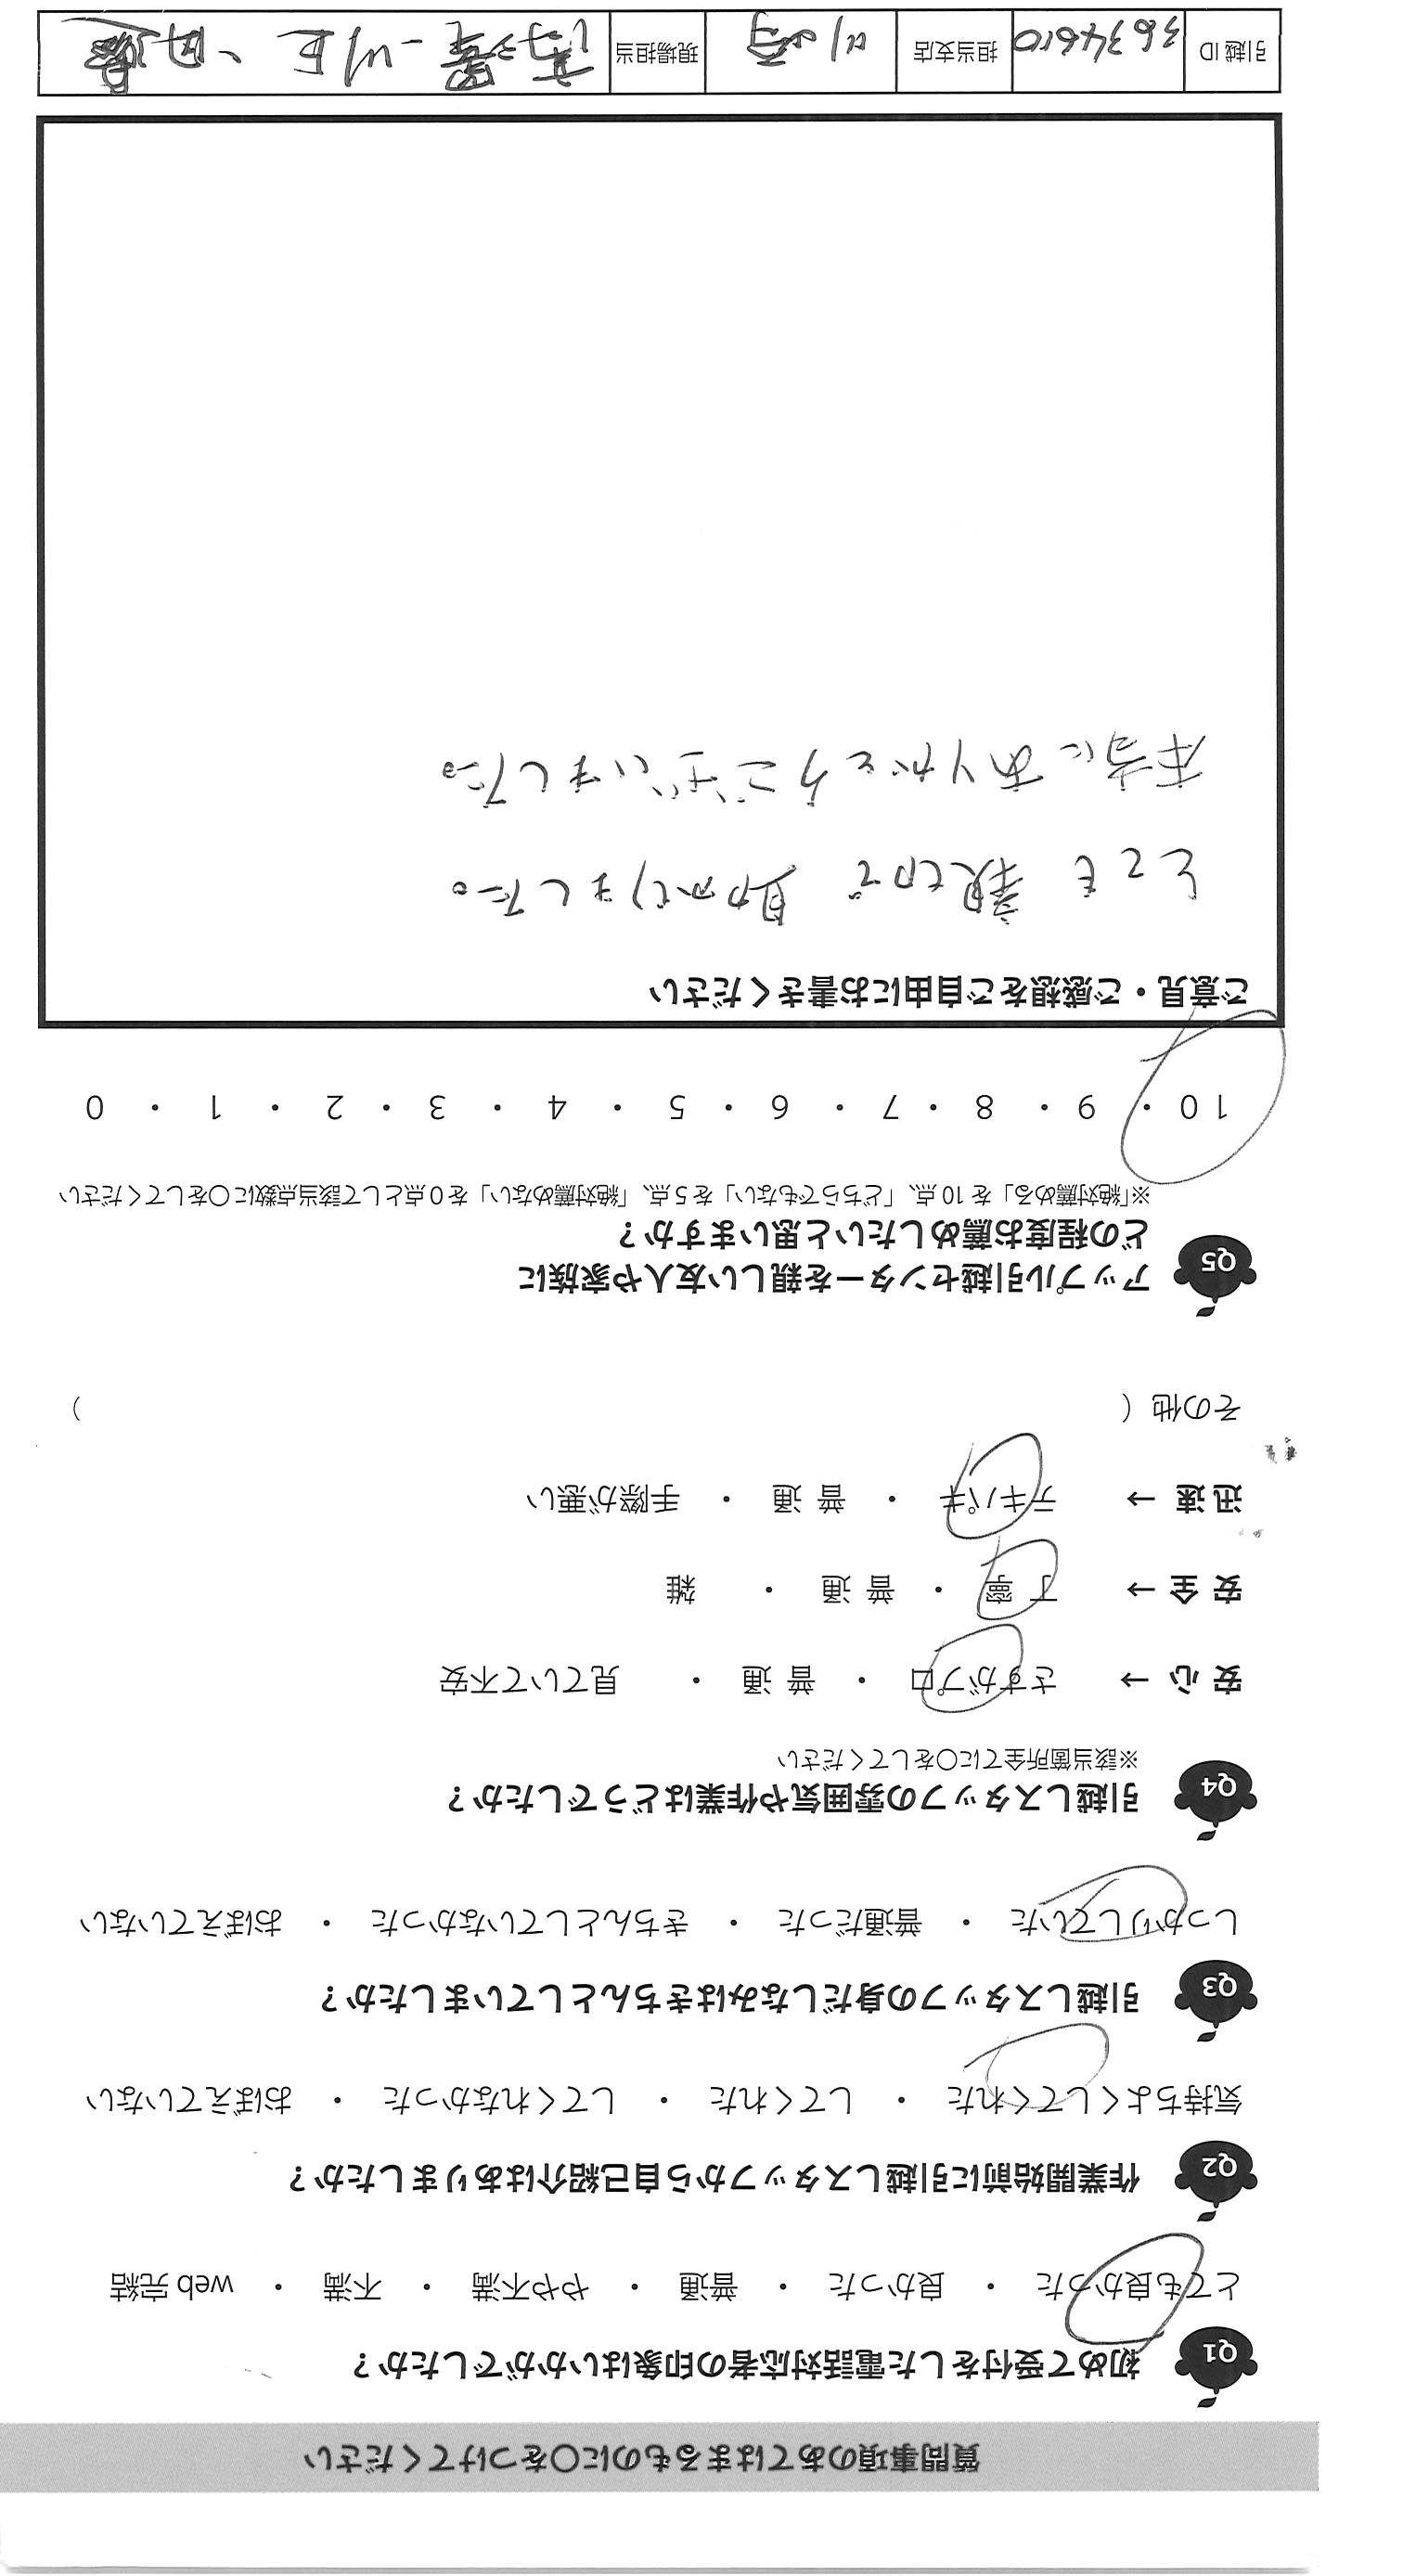 質問事項のあてはまるものに○をつけてください
Q1 初めて受付をした電話対応者の印象はいかがでしたか？
とても良かった ・ 良かった ・ 普通 ・ やや不満 ・ 不満 ・ web 完結
Q2 作業開始前に引越しスタッフから自己紹介はありましたか？
気持ちよくしてくれた ・ してくれた ・ してくれなかった ・ おぼえていない
Q3 引越しスタッフの身だしなみはきちんとしていましたか？
しっかりしていた ・ 普通だった ・ きちんとしていなかった ・ おぼえていない
Q4 引越しスタッフの雰囲気や作業はどうでしたか？
※該当箇所全てに○をしてください
安 心 → さすがプロ ・ 普 通 ・ 見ていて不安
安 全 → 丁 寧 ・ 普 通 ・ 雑
迅 速 → テキパキ ・ 普 通 ・ 手際が悪い
その他（ ）
Q5 アップル引越センターを親しい友人や家族に
どの程度お薦めしたいと思いますか？
※「絶対薦める」を 10 点、「どちらでもない」を 5 点、「絶対薦めない」を 0 点として該当点数に○をしてください
10 ・ 9 ・ 8 ・ 7 ・ 6 ・ 5 ・ 4 ・ 3 ・ 2 ・ 1 ・ 0
ご意見・ご感想をご自由にお書きください
とても 親切で 助かりました。
本当にありがとうございました。
引越 ID 3634610 担当支店 川崎 現場担当